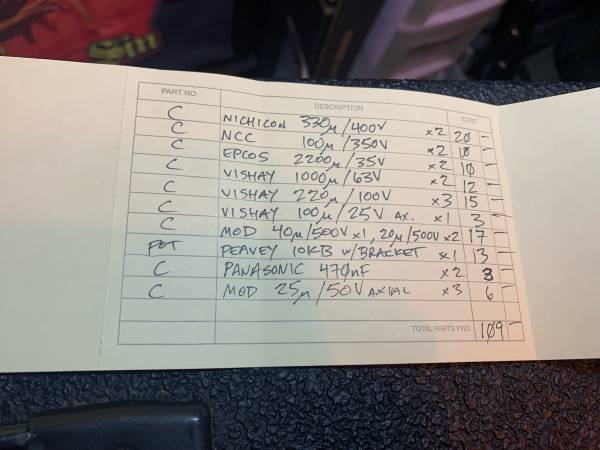 Sin
PART NO. DESCRIPTION COST
C NICHICON 330µ/400V x2 20 –
C NCC 100µ/350V x2 10 –
C EPCOS 2200µ/35V x2 10 –
C VISHAY 1000µ/63V x2 12 –
C VISHAY 220µ/100V x3 15 –
C VISHAY 100µ/25V AX. x1 3 –
C MOD 40µ/500V x1, 20µ/500V x2 17 –
POT PEAVEY 10KB W/BRACKET x1 13 –
C PANASONIC 470nF x2 3 –
C MOD 25µ/50V AXIAL x3 6 –
TOTAL PARTS FWD 109 –